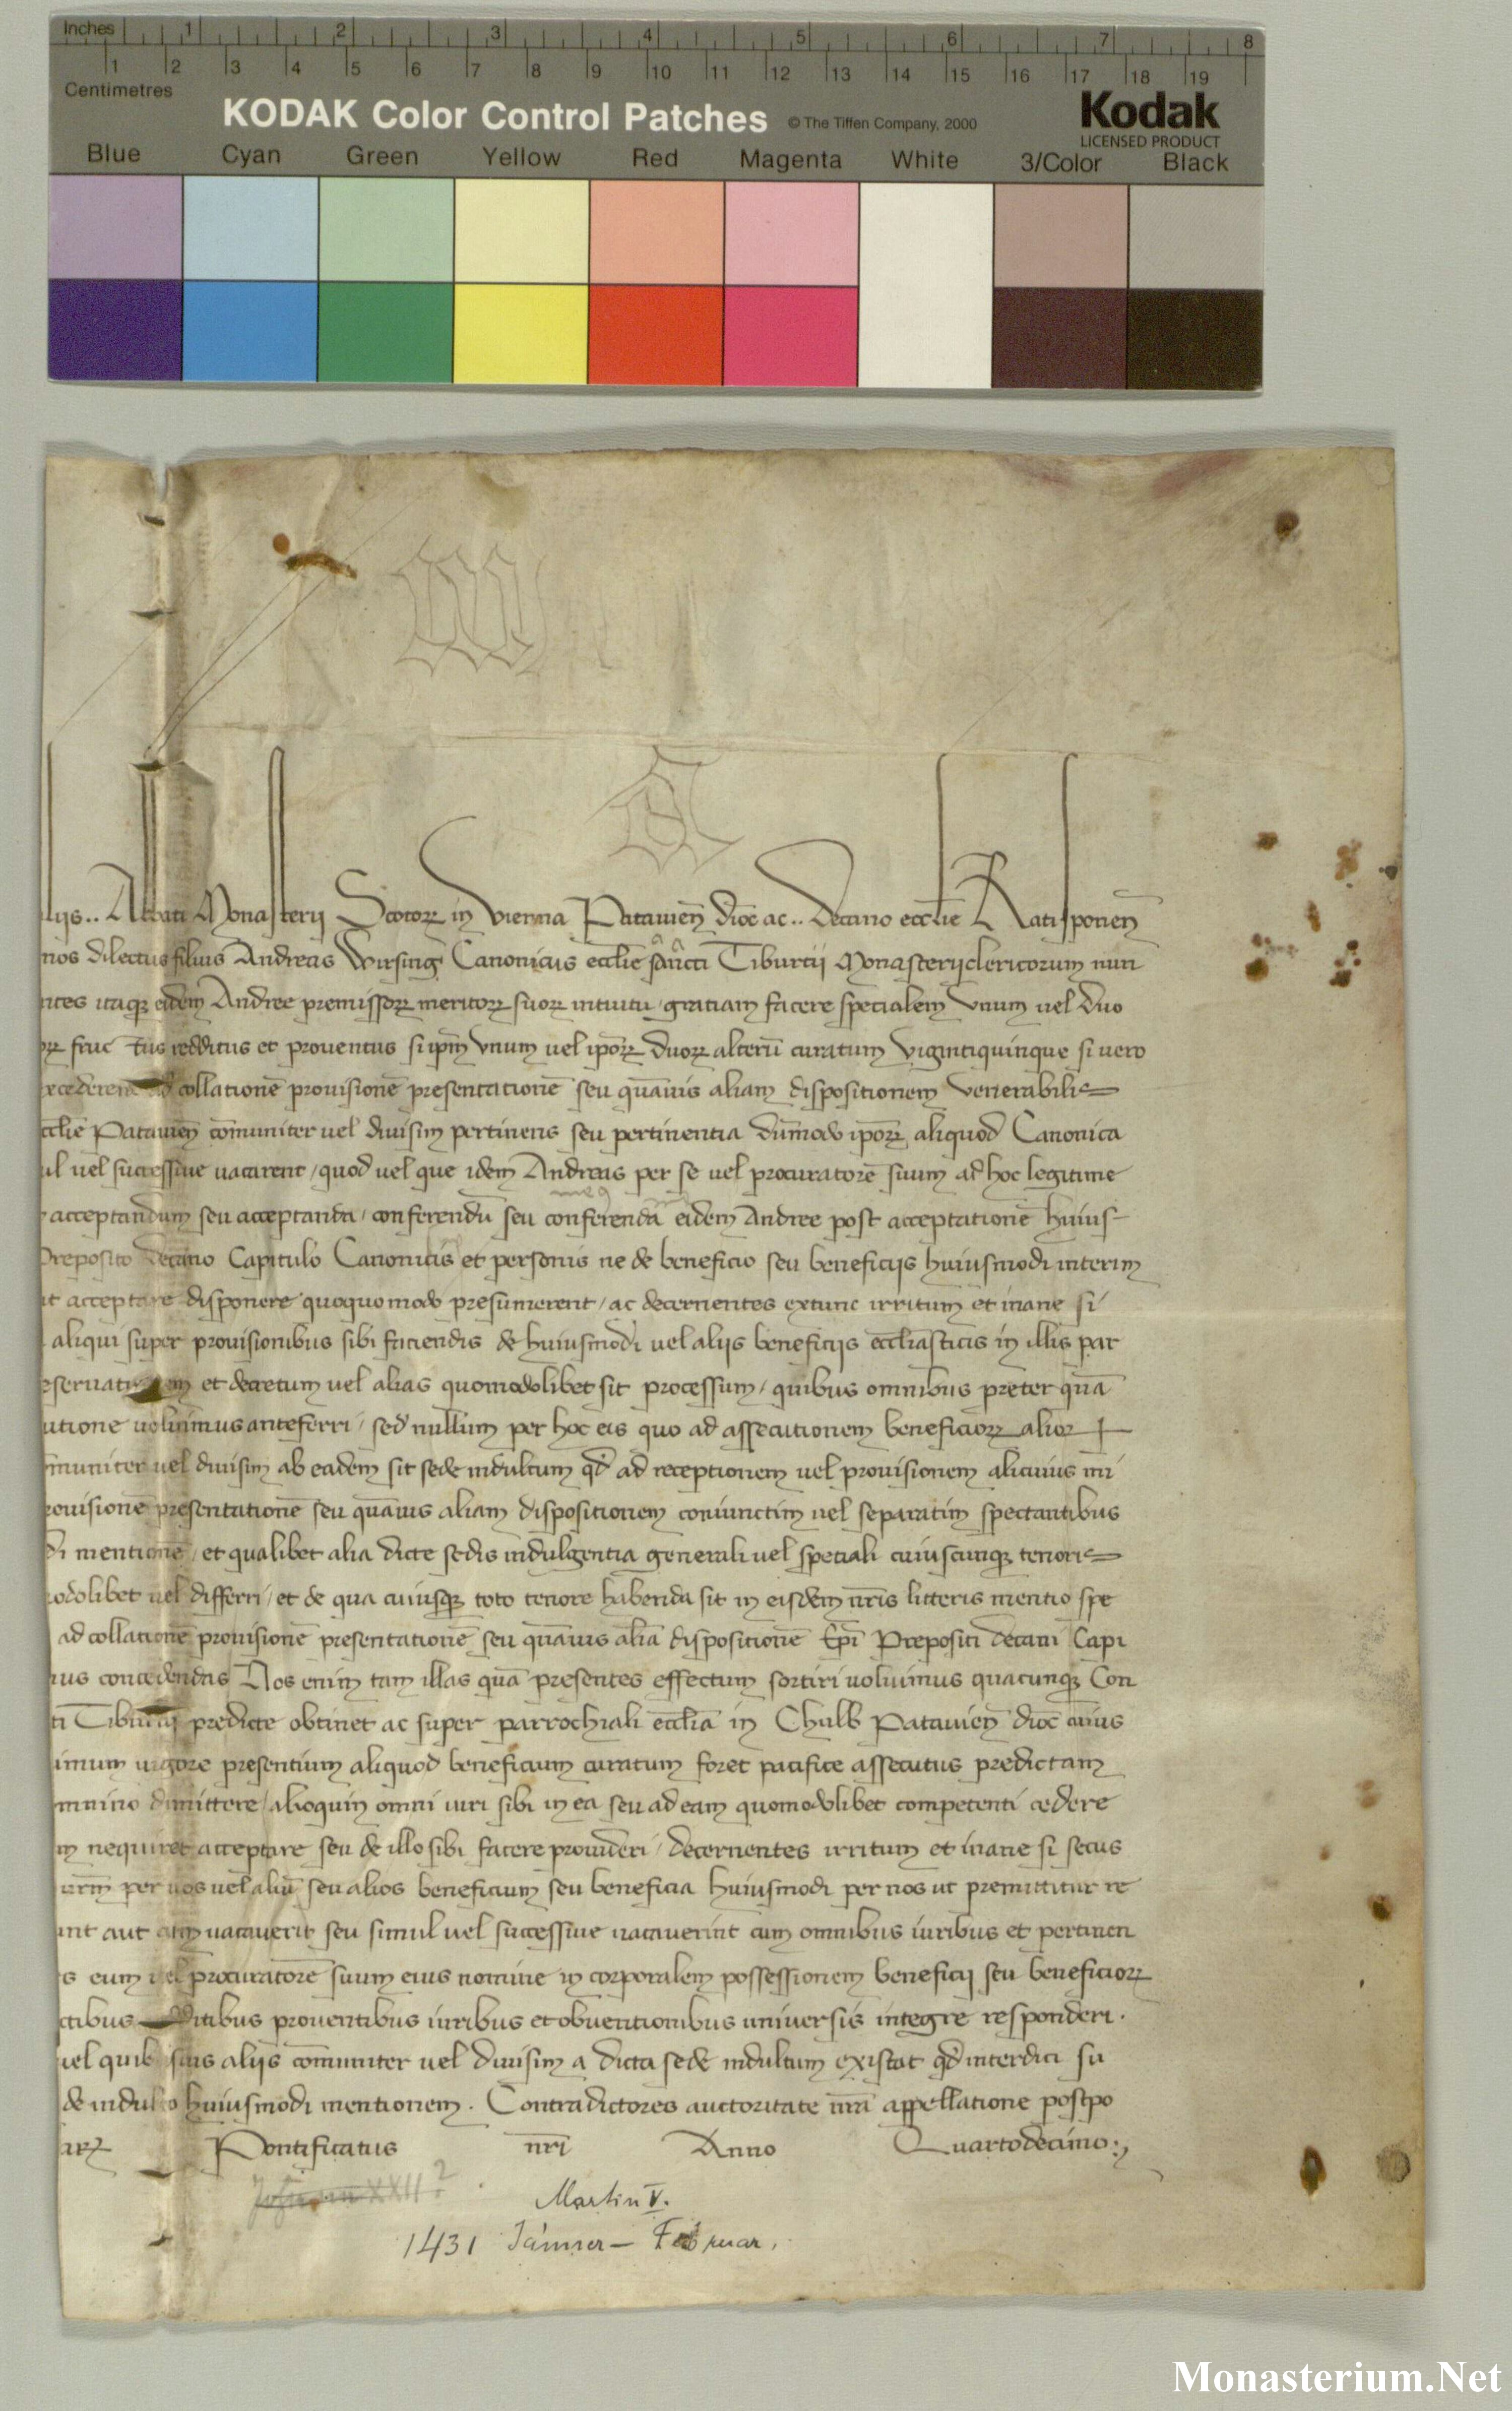 Inches 1 2 3 4 5 6 7 8
1 2 3 4 5 6 7 8 9 10 11 12 13 14 15 16 17 18 19
Centimetres
KODAK Color Control Patches © The Tiffen Company, 2000 Kodak
LICENSED PRODUCT
Blue Cyan Green Yellow Red Magenta White 3/Color Black
liis .. Abbati Monasterij Scotoꝝ in Vienna Patauieñ dioc̄ ac .. Decano eccl̄ie Ratisponeñ
nos dilectus filius Andreas Wirsing Canonicus eccl̄ie sancti Tiburtii Monasterij clericorum nun
ntes itaqꝫ eidem Andree premissoꝝ meritoꝝ suoꝝ intuitu / gratiam facere specialem vnum uel duo
oꝝ fruc tus redditus et prouentus si ip̄m vnum uel ipoꝝ duoꝝ alterū curatum vigintiquinque si uero
excederent ad collationē prouisionē presentationē seu quāuis aliam dispositionem venerabilis
eccl̄ie Patauieñ cōmuniter uel diuisim pertinens seu pertinentia dūmodo ipoꝝ aliquod Canonica
ul uel successiue uacarent / quod uel que idem Andreas per se uel procuratorē suum ad hoc legitime
acceptandum seu acceptanda / conferendū seu conferenda eidem Andree post acceptationē huius
Preposito Decano Capitulo Canonicis et personis ne de beneficio seu beneficijs huiusmodi interim
it acceptare disponere quoquomodo presumerent / ac decernentes extunc irritum et inane si
aliqui super prouisionibus sibi faciendis de huiusmodi uel aliis beneficijs eccl̄iasticis in illis par
eseruationem et decretum uel alias quomodolibet sit processum / quibus omnibus preter quā
utione uolumus anteferri / sed nullum per hoc eis quo ad assecutionem beneficioꝝ alioꝝ
muniter uel diuisim ab eadem sit sede indultum qd̄ ad receptionem uel prouisionem alicuius mi
rouisionē presentationē seu quāuis aliam dispositionem coniunctim uel separatim spectantibus
di mentionē / et qualibet alia dicte sedis indulgentia generali uel speciali cuiuscunqꝫ tenoris
modolibet uel differri / et de qua cuiusqꝫ toto tenore habenda sit in eisdem nr̄is litteris mentio spe
ad collationē prouisionē presentationē seu quāuis aliā dispositionē Ep̄i Prepositi Decani Capi
ius concedendas Nos enim tam illas quā presentes effectum sortiri uolumus quacunqꝫ Con
ti Tiburtij predicte obtinet ac super parrochiali eccl̄ia in Chulb Patauieñ dioc̄ cuius
imum uigore presentium aliquod beneficium curatum foret pacifice assecutus predictam
mnino dimittere / alioquin omni iuri sibi in ea seu ad eam quomodolibet competenti cedere
m nequiret acceptare seu de illo sibi facere prouideri / decernentes irritum et inane si secus
urm per uos uel aliū seu alios beneficium seu beneficia huiusmodi per nos ut premittitur re
int aut uacauerit seu simul uel successiue uacauerint cum omnibus iuribus et pertinen
s eum uel procuratorē suum eius nomine in corporalem possessionem beneficij seu beneficioꝝ
ctibus redditibus prouentibus iuribus et obuentionibus uniuersis integre responderi .
uel quibusuis aliis cōmuniter uel diuisim a dicta sede indultum existat qd̄ interdici su
de indulto huiusmodi mentionem . Contradictores auctoritate nr̄a appellatione postpo
Pontificatus nr̄i Anno Quartodecimo :
Johann XXII ?
Martin V.
1431 Jänner – Februar,
Monasterium.Net